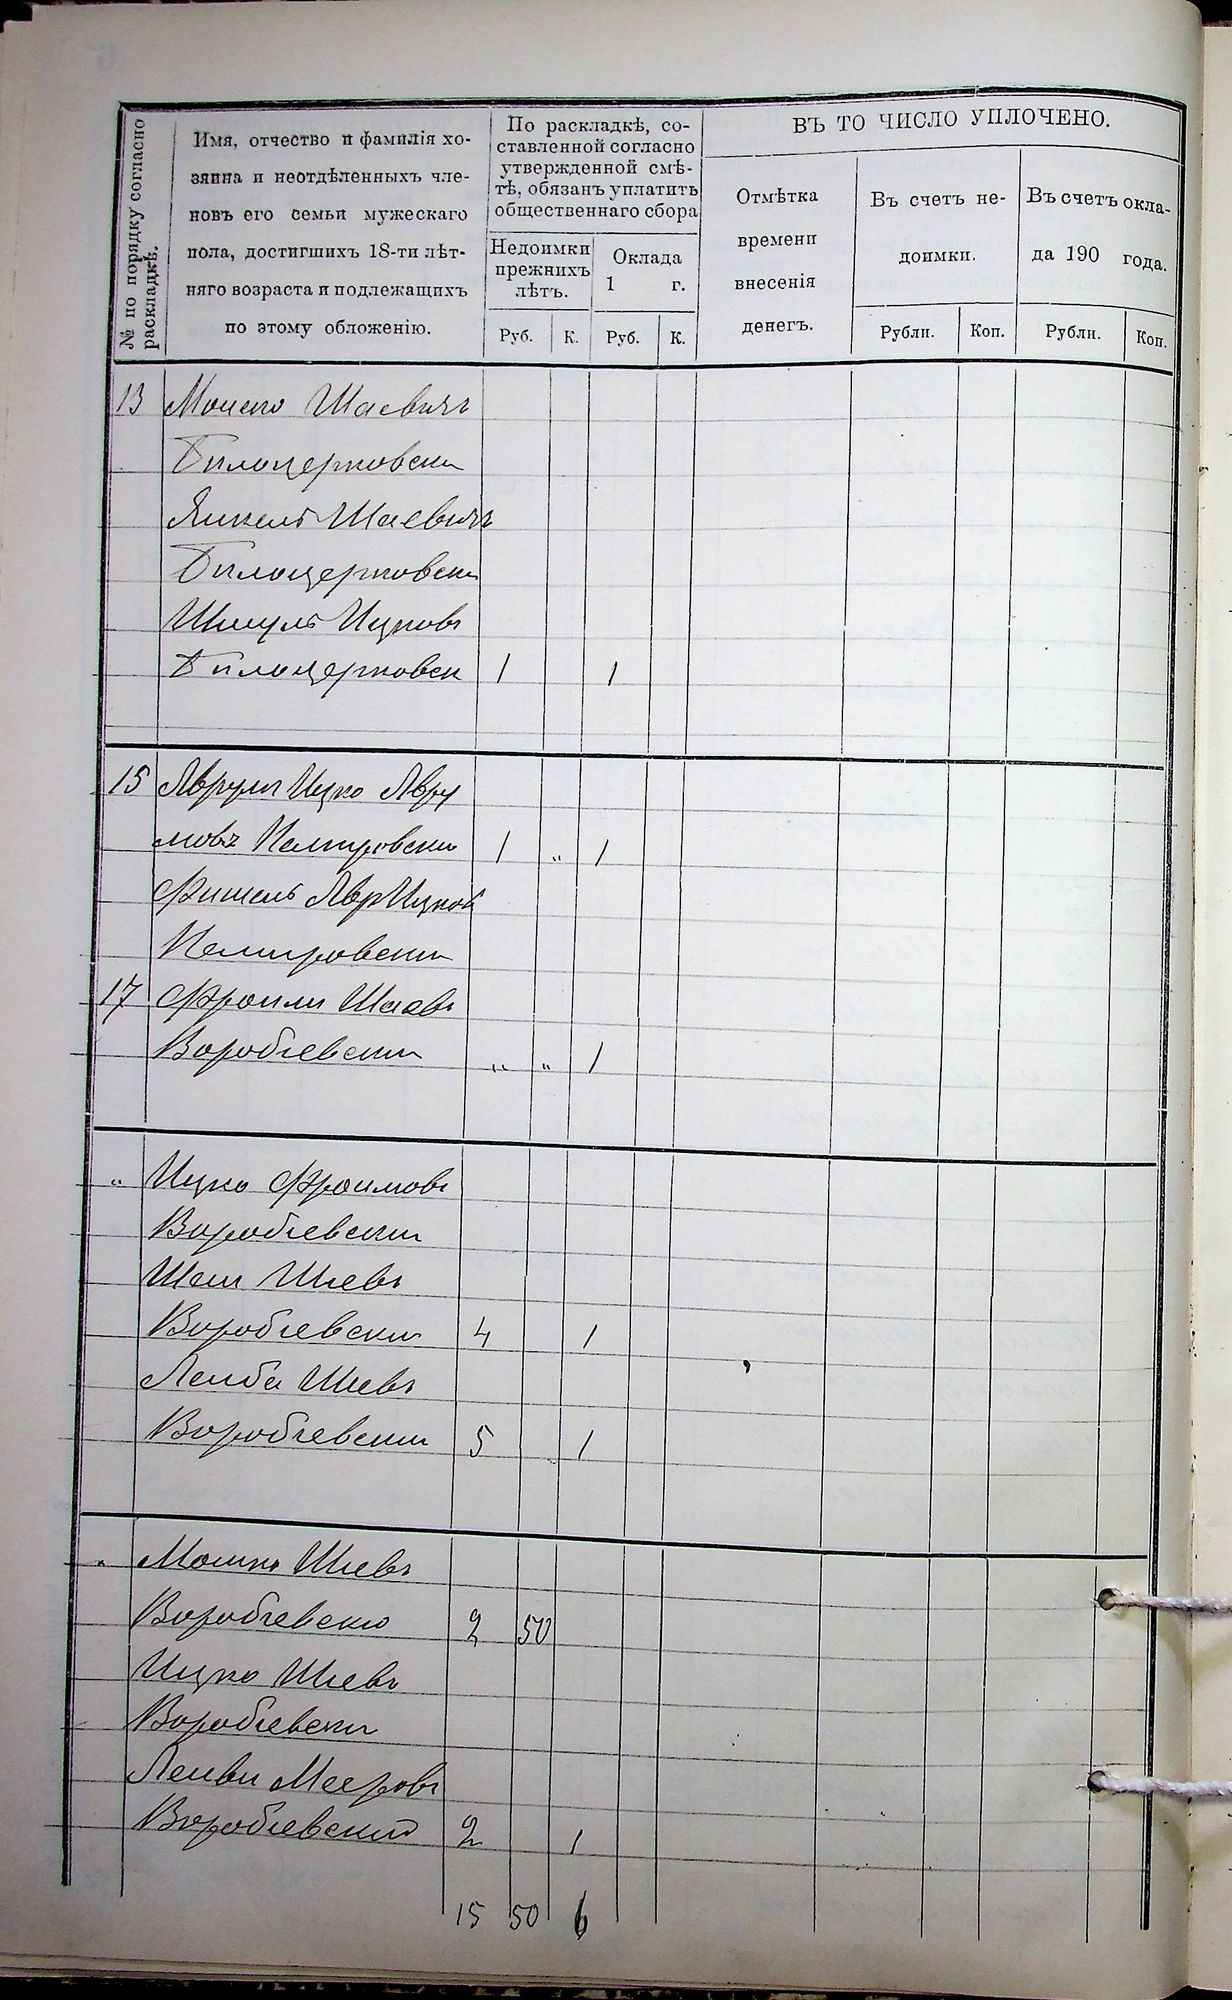 № по порядку согласно раскладкѣ.
Имя, отчество и фамилія хо-
зяина и неотдѣленныхъ чле-
новъ его семьи мужескаго
пола, достигшихъ 18-ти лѣт-
няго возраста и подлежащихъ
по этому обложенію.
По раскладкѣ, со-
ставленной согласно
утвержденной смѣ-
тѣ, обязанъ уплатить
общественнаго сбора
Недоимки
прежнихъ
лѣтъ.
Оклада
1 г.
Руб. К. Руб. К.
ВЪ ТО ЧИСЛО УПЛОЧЕНО.
Отмѣтка
времени
внесенія
денегъ.
Въ счетъ не-
доимки.
Въ счетъ окла-
да 190 года.
Рубли. Коп. Рубли. Коп.
13 Шаевичъ
Билоцерковски
Янкель Шаевичъ
Билоцерковски
Шмуль Ицковъ
Билоцерковск 1 1
15 Аврум Ицко Авру
мовъ Немировски 1 „ 1
Фишель Авр Ицков
Немировски
17 Фроим Шаевъ
Воробіевски „ „ 1
„ Ицко Фроимовъ
Воробіевски
Шиевъ
Воробіевски 4 1
Лейба Шиевъ
Воробіевски 5 1
„ Мошко Шиевъ
Воробіевско 2 50
Ицко Шиевъ
Воробіевски
Мееровъ
Воробіевский 2 1
15 50 6